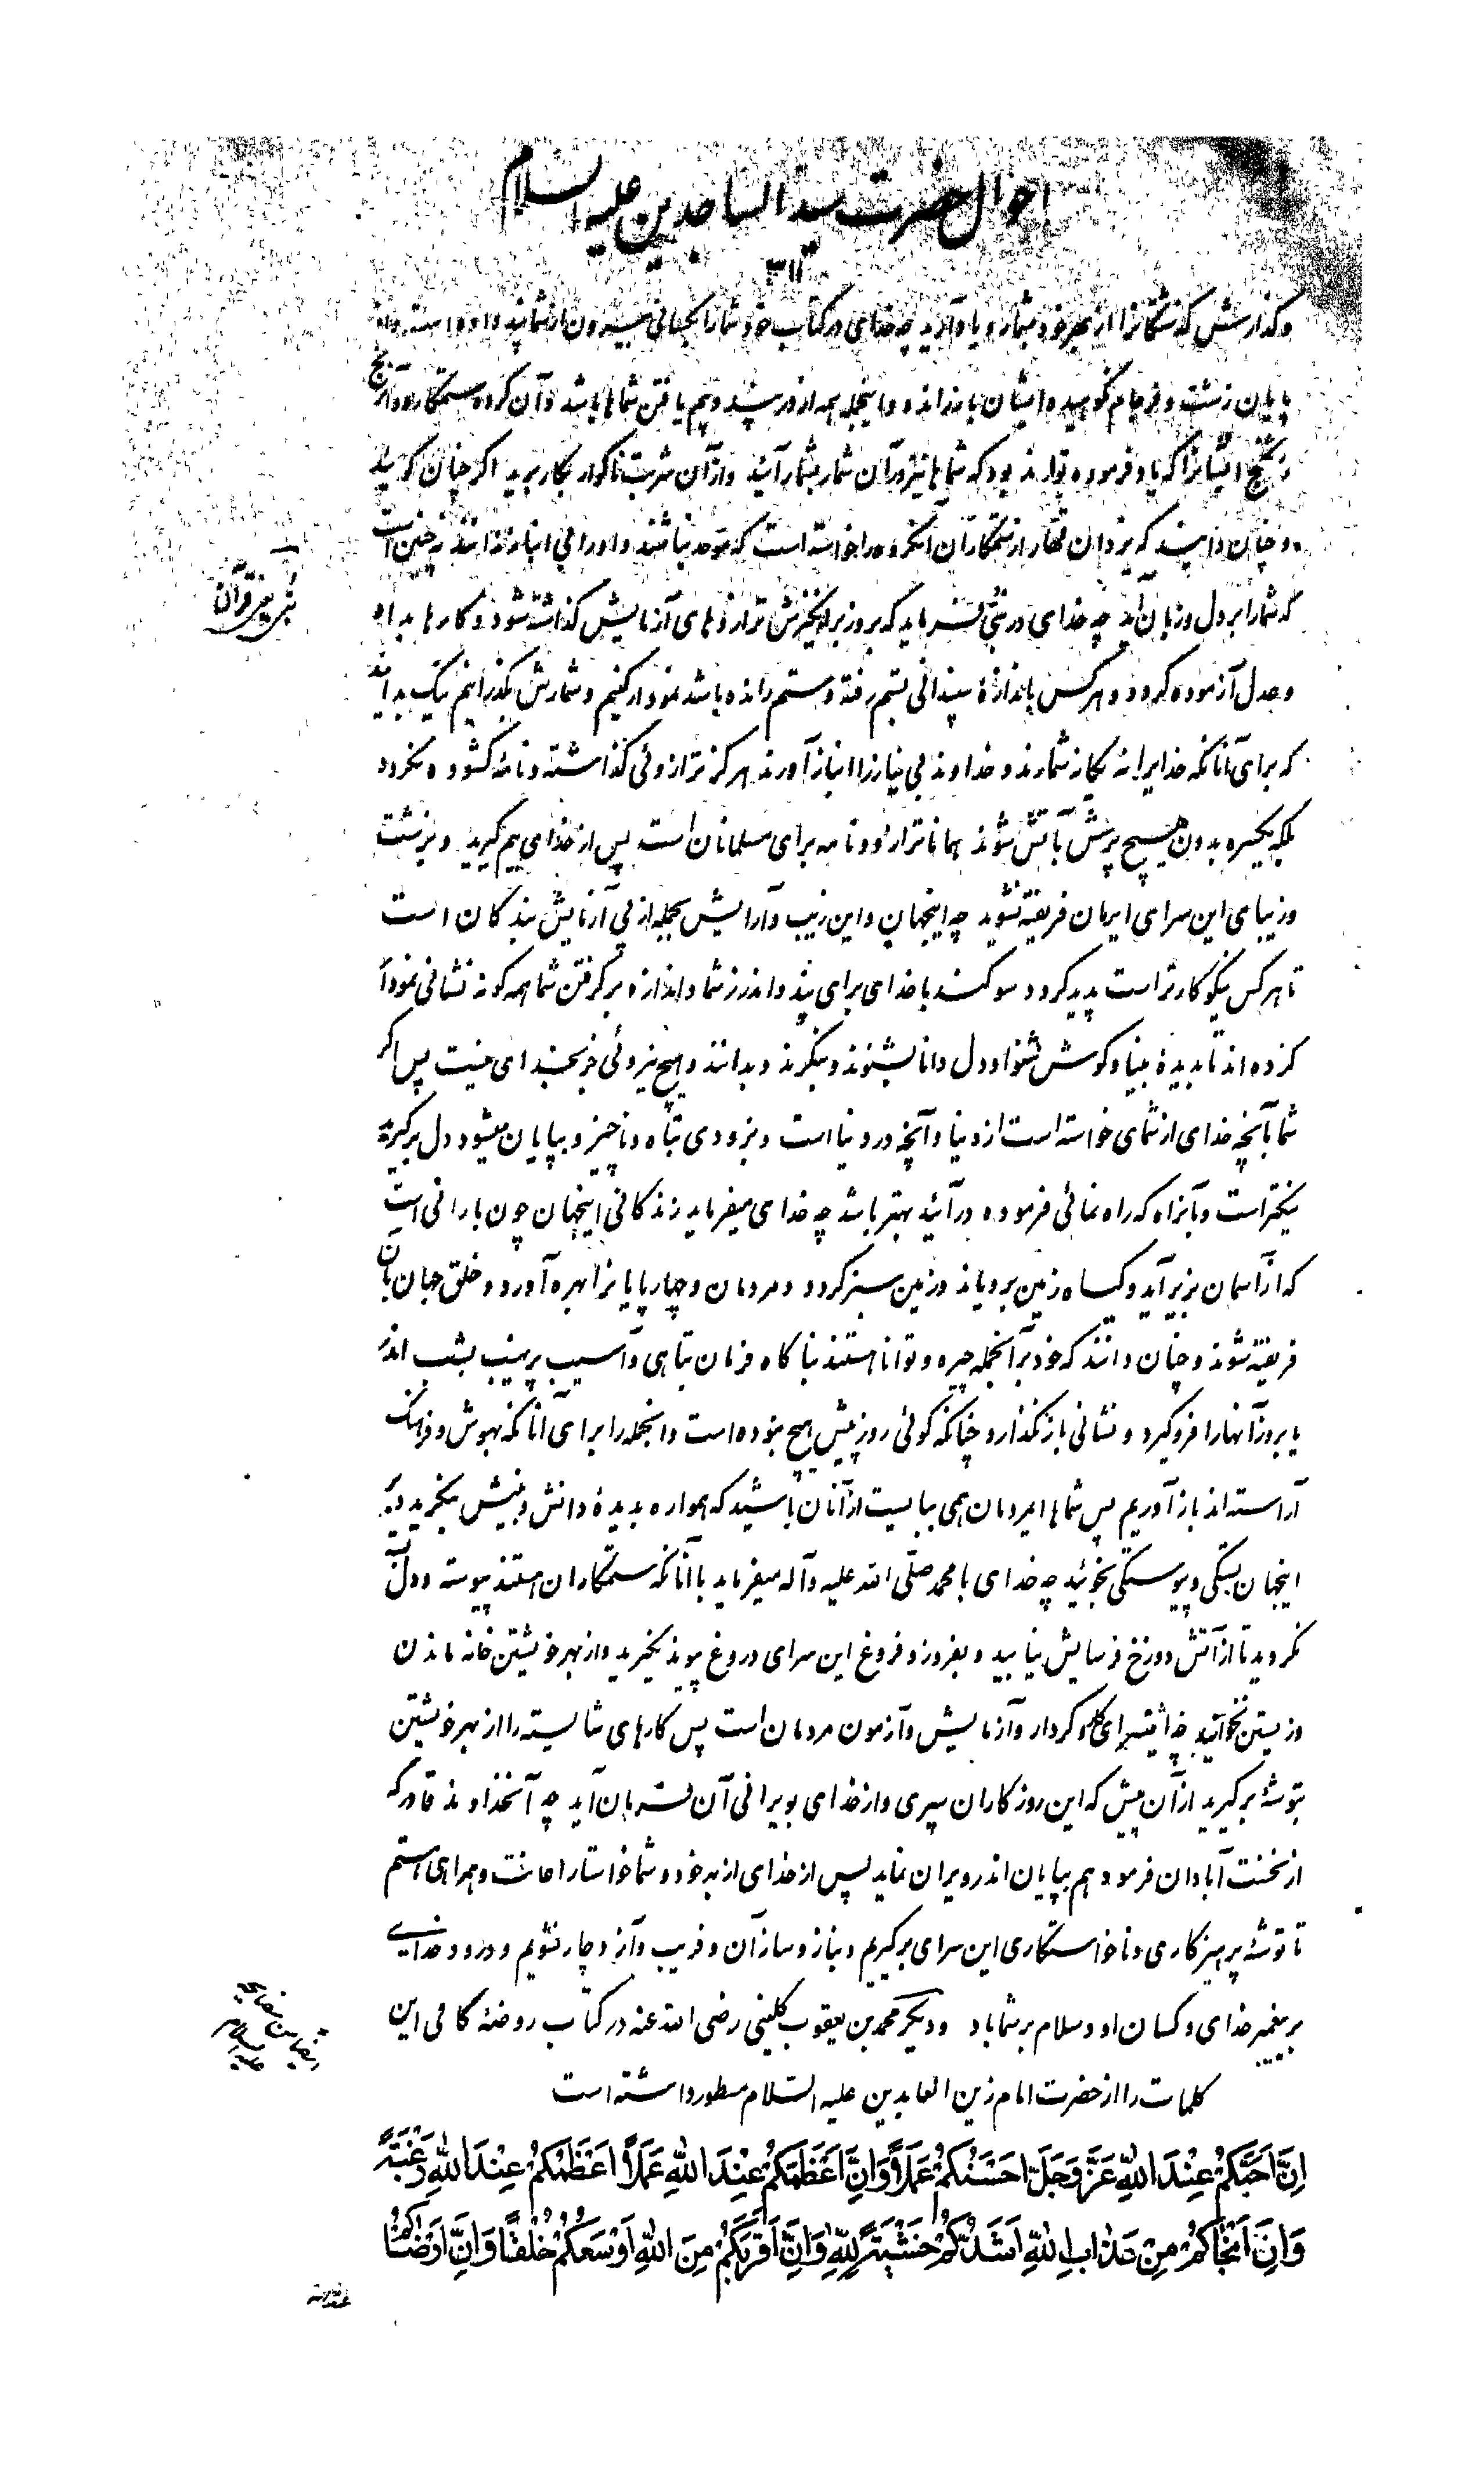 احوال حضرت سید الساجدین علیه السلام
۳۱۱
وگذارش گذشتگانرا از بهر خود بشمارید و یاد آرید چه خدای در کتاب خود شما را بکسانی بیرون از شما پند داده است
پایان زشت و فرجام نکوهیده ایشان بازراند و اینجمله همه از در پند و بیم یافتن شماها باشد و آن گروه ستمکار
ایشانرا که یاد فرموده تواند بود که شماها نیز در آن شمار بشمار آئید و از آن شربت ناگوار بکار برید اگر چنان گوئید
و چنان دانید که یزدان قهار از ستمکاران آنگروه را خواسته است که موحد نباشند و او را بی انباز ندانند نه چنین است
که شما را بر دل و زبان آید چه خدای در نبی میفرماید که بروز برانگیزش ترازوهای آزمایش گذاشته شود و کارها بداد
و عدل آزموده گردد و هر کس باندازهٔ سپندانی بستم رفته و ستم رانده باشد نمودار کنیم و شمارش بگذرانیم نیک بدانید
که برای آنانکه خدایرا نه یگانه شمارند و خداوند بی نیاز را انباز آورند هرگز ترازوئی گذاشته و نامهٔ گشوده نگردد
بلکه یکسره بدون هیچ پرسش بآتش شوند همانا ترازو و نامه برای مسلمانان است پس از خدای بیم گیرید و بزشت
و زیبای این سرای ایرمان فریفته نشوید چه اینجهان و این زیب و آرایش بجمله از پی آزمایش بندگان است
تا هر کس نیکو کارتر است پدید گردد سوگند با خدای برای پند و اندرز شما و اندازه برگرفتن شما همه گونه نشانی نمودار
کرده اند تا بدیدهٔ بینا و گوش شنوا و دل دانا بشنوند و بنگرند و بدانند و هیچ نیروئی جز بخدای نیست پس اگر
شما بآنچه خدای از شمای خواسته است از دنیا و آنچه در دنیا است و بزودی تباه و ناچیز و بپایان میشود دل برگیرید
نیکتر است و بآنراه که راه نمائی فرموده در آئید بهتر باشد چه خدای میفرماید زندگانی اینجهان چون بارانی است
که از آسمان بزیر آید و گیاه زمین برویاند و زمین سبز گردد و مردمان و چهارپایانرا بهره آورد و خلق جهان بآن
فریفته شوند و چنان دانند که خود بر آنجمله چیره و توانا هستند بناگاه فرمان تباهی و آسیب بر نهیب بشب اندر
یا بروز آنها را فرو گیرد و نشانی باز نگذارد چنانکه گوئی روز پیش هیچ نبوده است و اینجمله را برای آنانکه بهوش و فرهنگ
آراسته اند باز آوردیم پس شماها ایمردمان همی ببایست از آنان باشید که همواره بدیدهٔ دانش و بینش بنگرید و نه
اینجهان بستگی و پیوستگی بجوئید چه خدای با محمد صلّی الله علیه و آله میفرماید با آنانکه ستمکاران هستند پیوسته و دل بسته
نگردید تا از آتش دوزخ فرسایش نیابید و بفروز و فروغ این سرای دروغ پیوند نگیرید و از بهر خویشتن خانه ماندن
و زیستن نخوانید چه اینسرای کار و کردار و آزمایش و آزمون مردمان است پس کارهای شایسته را از بهر خویشتن
بتوشهٔ برگیرید از آن پیش که این روزگاران سپری و از خدای بویرانی آن فرمان آید چه آنخداوند قادر که
از نخست آبادان فرمود هم بپایان اندر ویران نماید پس از خدای از بهر خود و شما خواستار اعانت و همراهی هستم
تا توشهٔ پرهیزکاری و ناخواستگاری این سرای برگیریم و بناز و ساز آن و فریب و آز دچار نشویم و درود خدای
بر پیغمبر خدای و کسان او و سلام بر شما باد و دیگر محمد بن یعقوب کلینی رضی الله عنه در کتاب روضهٔ کافی این
کلمات را از حضرت امام زین العابدین علیه السّلام مسطور داشته است
اِنَّ اَحَبَّكُمْ عِنْدَ اللّٰهِ عَزَّ وَجَلَّ اَحْسَنُكُمْ عَمَلًا وَاِنَّ اَعْظَمَكُمْ عِنْدَ اللّٰهِ عَمَلًا اَعْظَمُكُمْ عِنْدَ اللّٰهِ رَغْبَةً
وَاِنَّ اَنْجٰاكُمْ مِنْ عَذٰابِ اللّٰهِ اَشَدُّكُمْ خَشْيَةً لِلّٰهِ وَاِنَّ اَقْرَبَكُمْ مِنَ اللّٰهِ اَوْسَعُكُمْ خُلْقًا وَاِنَّ اَرْضٰاكُمْ
نبی یعنی قرآن